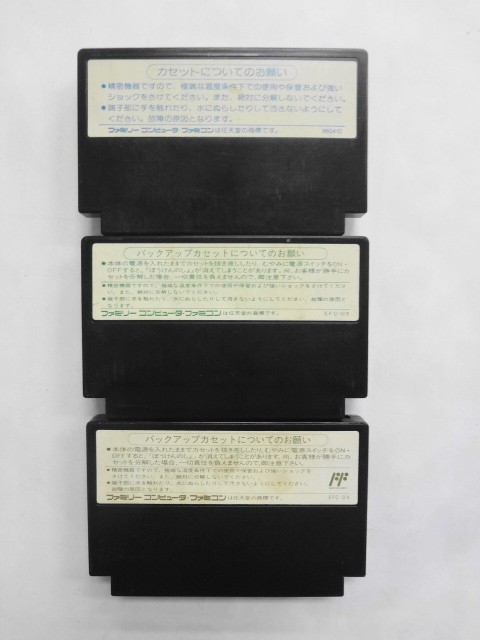 カセットについてのお願い
●精密機器ですので、極端な温度条件下での使用や保管および強い
ショックをさけてください。また、絶対に分解しないでください。
●端子部に手を触れたり、水にぬらしたりして汚さないようにして
ください。故障の原因となります。
ファミリーコンピュータ・ファミコンは任天堂の商標です。
バックアップカセットについてのお願い
●本体の電源を入れたままでカセットを抜き差ししたり、むやみに電源スイッチをON・
OFFすると、「ぼうけんのしょ」が消えてしまうことがあります。尚、お客様が勝手にカ
セットを分解した場合、一切責任を負えませんので、御注意下さい。
●精密機器ですので、極端な温度条件下での使用や保管および強いショックをさけてくださ
い。また、絶対に分解しないでください。
●端子部に手を触れたり、水にぬらしたりして汚さないようにしてください。故障の原因と
なります。
ファミリーコンピュータ・ファミコンは任天堂の商標です。
バックアップカセットについてのお願い
●本体の電源を入れたままでカセットを抜き差ししたり、むやみに電源スイッチをON・
OFFすると、「ぼうけんのしょ」が消えてしまうことがあります。尚、お客様が勝手にカ
セットを分解した場合、一切責任を負えませんので、御注意下さい。
●精密機器ですので、極端な温度条件下での使用や保管および強いショックを
さけてください。また、絶対に分解しないでください。
●端子部に手を触れたり、水にぬらしたりして汚さないようにしてください。
故障の原因となります。
ファミリーコンピュータ・ファミコンは任天堂の商標です。